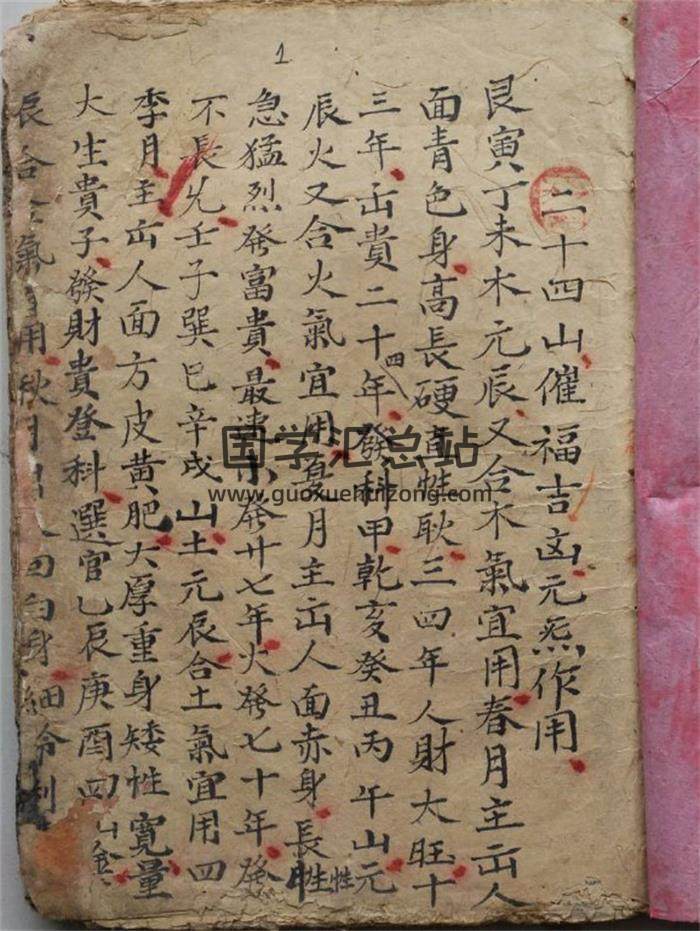 1
二十四山催福吉凶元炁作用
艮寅丁未木元辰又合木氣宜用春月主出人
面青色身高長硬直性耿三四年人財大旺十
三年出貴二十四年發科甲乾亥癸丑丙午山元
辰火又合火氣宜用夏月主出人面赤身長性
急猛烈發富貴最速小發廿七年火發七十年發
不長久壬子巽巳辛戌山土元辰合土氣宜用四
季月主出人面方皮黃肥大厚重身矮性寬量
大生貴子發財貴登科選官乙辰庚酉四山金
辰合金氣宜用秋月出人面白身細伶俐
国学汇总站
www.guoxuehuizong.com